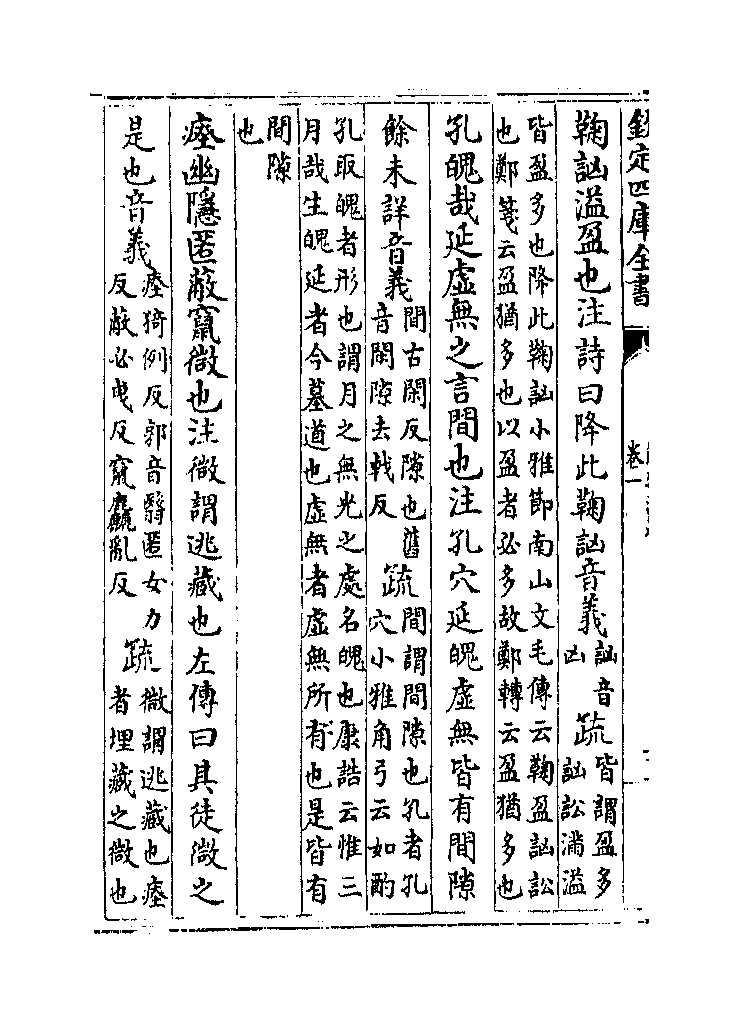 欽定四庫全書
卷一
鞠訩溢盈也注詩曰降此鞠訩音義訩音
凶
疏皆謂盈多
訩訟滿溢
皆盈多也降此鞠訩小雅節南山文毛傳云鞠盈訩訟
也鄭箋云盈猶多也以盈者必多故鄭轉云盈猶多也
孔魄哉延虚無之言間也注孔穴延魄虚無皆有間隙
餘未詳音義間古閑反隙也舊
音閑隙去㦸反
疏間謂間隙也孔者孔
穴小雅角弓云如酌
孔取魄者形也謂月之無光之處名魄也康誥云惟三
月哉生魄延者今墓道也虚無者虚無所有也是皆有
間隙
也
瘞幽隱匿蔽竄微也注微謂逃藏也左傳曰其徒微之
是也音義瘞猗例反郭音翳匿女力
反蔽必曵反竄麤亂反
疏微謂逃藏也瘞
者埋藏之微也